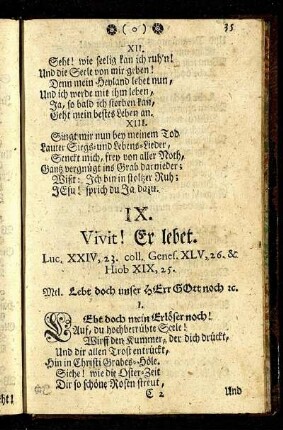 ( o ) 35
XII.
Seht! wie seelig kan ich ruh'n!
Und die Seele von mir geben!
Denn mein Heyland lebet nun,
Und ich werde mit ihm leben,
Ja, so bald ich storben kan,
Geht mein bestes Leben an.
XIII.
Singt mir nun bey meinem Tod
Lauter Siegs- und Lebens-Lieder,
Senckt mich, frey von aller Noth,
Gantz vergnügt ins Grab darnieder;
Wißt: Ich bin in stoltzer Ruh;
JEsu! sprich du Ja dazu.
IX.
Vivit! Er lebet.
Luc. XXIV, 23. coll. Genes. XLV, 26. &
Hiob XIX, 25.
Mel. Lebt doch unser HErr GOtt noch ꝛc.
I.
LEbt doch mein Erlöser noch!
Auf, du hochbetrübte Seele!
Wirff den Kummer, der dich drückt,
Und dir allen Trost entrückt,
Hin in Christi Grabes-Höle.
Siehe! wie die Oster-Zeit
Dir so schöne Rosen streut,
C 2 Und